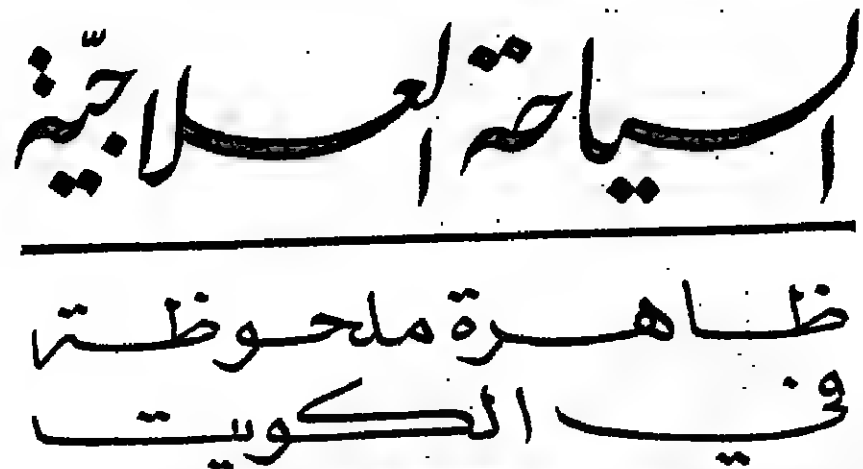 السياحة العلاجيّة
ظاهرة ملحوظة
في الكويت